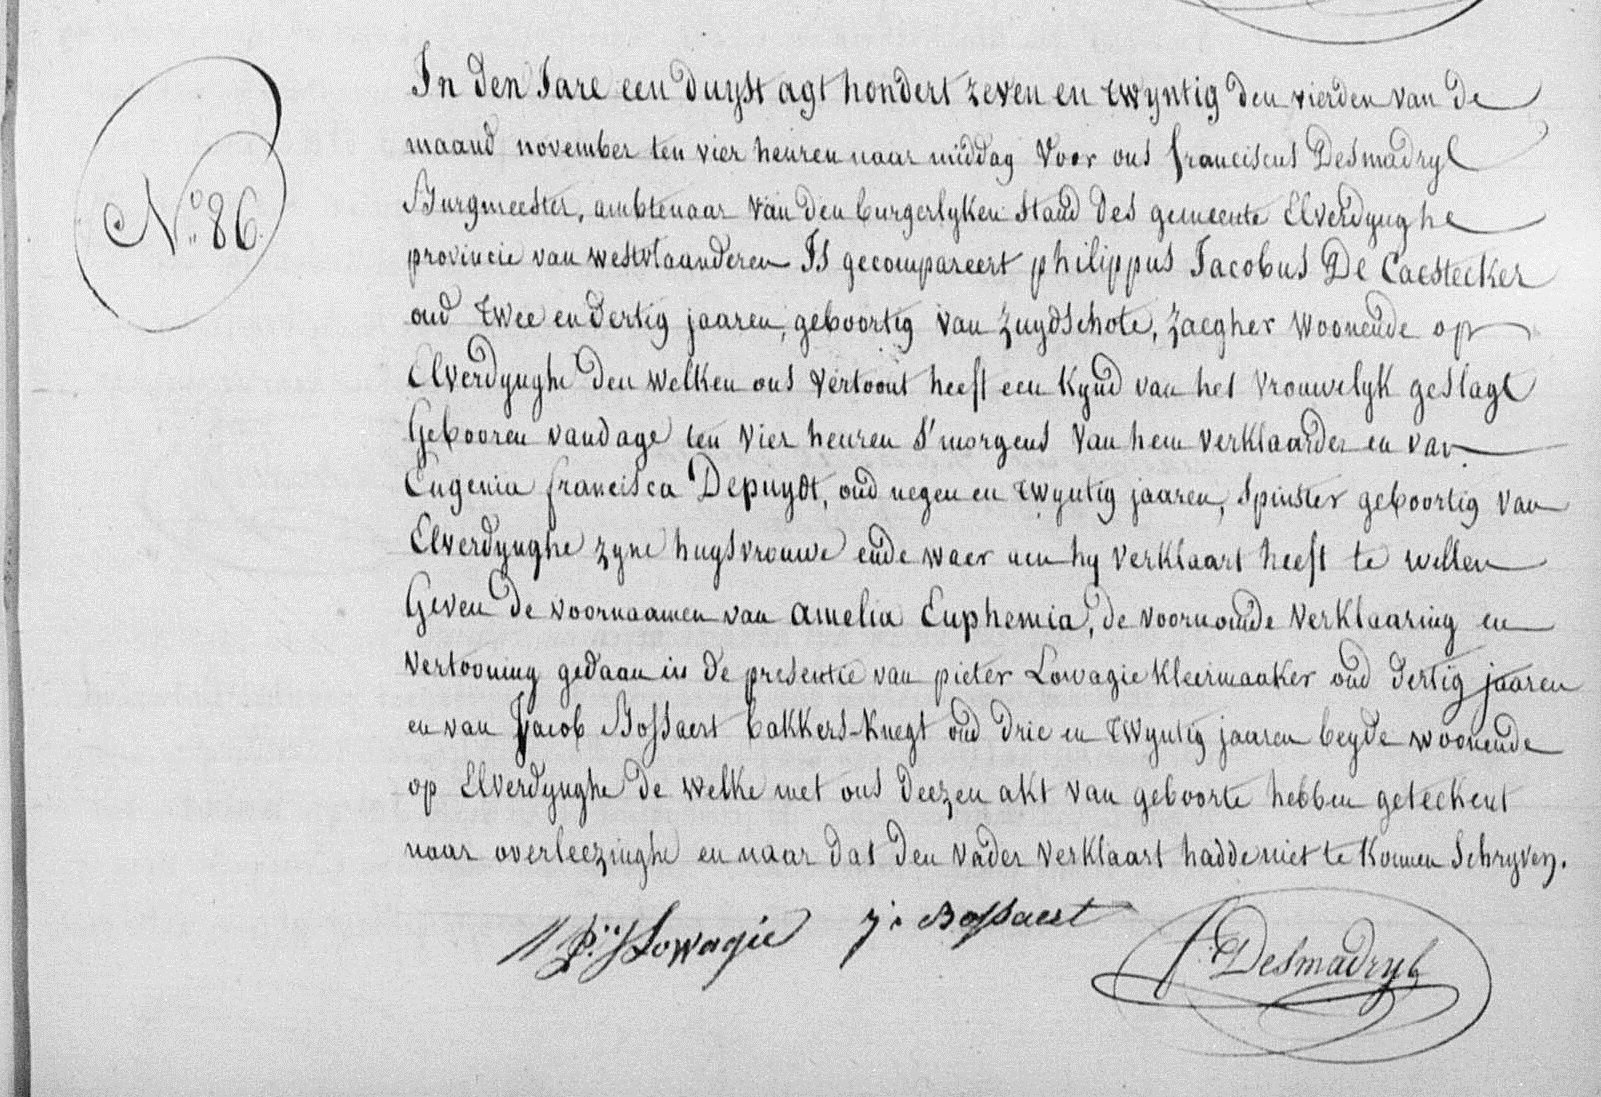 N.º 86.
In den Jare een duyst agt hondert zeven en twyntig den vierden van de
maand november ten vier heuren naar middag voor ons franciscus Desmadryl
Burgmeester, ambtenaar van den burgerlyken stand des gemeente Elverdynghe
provincie van westvlaanderen Is gecompareert philippus Jacobus De Caestecker
oud twee en dertig jaaren, geboortig van Zuydschote, Zaegher woonende op
Elverdynghe den welken ons vertoont heeft een kynd van het vrouwelyk geslagt
Gebooren vandage ten vier heuren s'morgens van hem verklaarder en van
Eugenia francisca Depuydt, oud negen en twyntig jaaren, spinster geboortig van
Elverdynghe zyne huysvrouwe ende waer aen hy verklaart heeft te willen
Geven de voornaamen van Amelia Euphemia, de voornoemde verklaaring en
vertooning gedaan in de presentie van pieter Lowagie kleermaaker oud dertig jaaren
en van Jacob Bossaert bakkers-knegt oud drie en twyntig jaaren beyde woonende
op Elverdynghe de welke met ons deezen akt van geboorte hebben geteekent
naar overleezinghe en naar dat den vader verklaart hadde niet te konnen schryven.
P: J Lowagie J: Bossaert f: Desmadryl